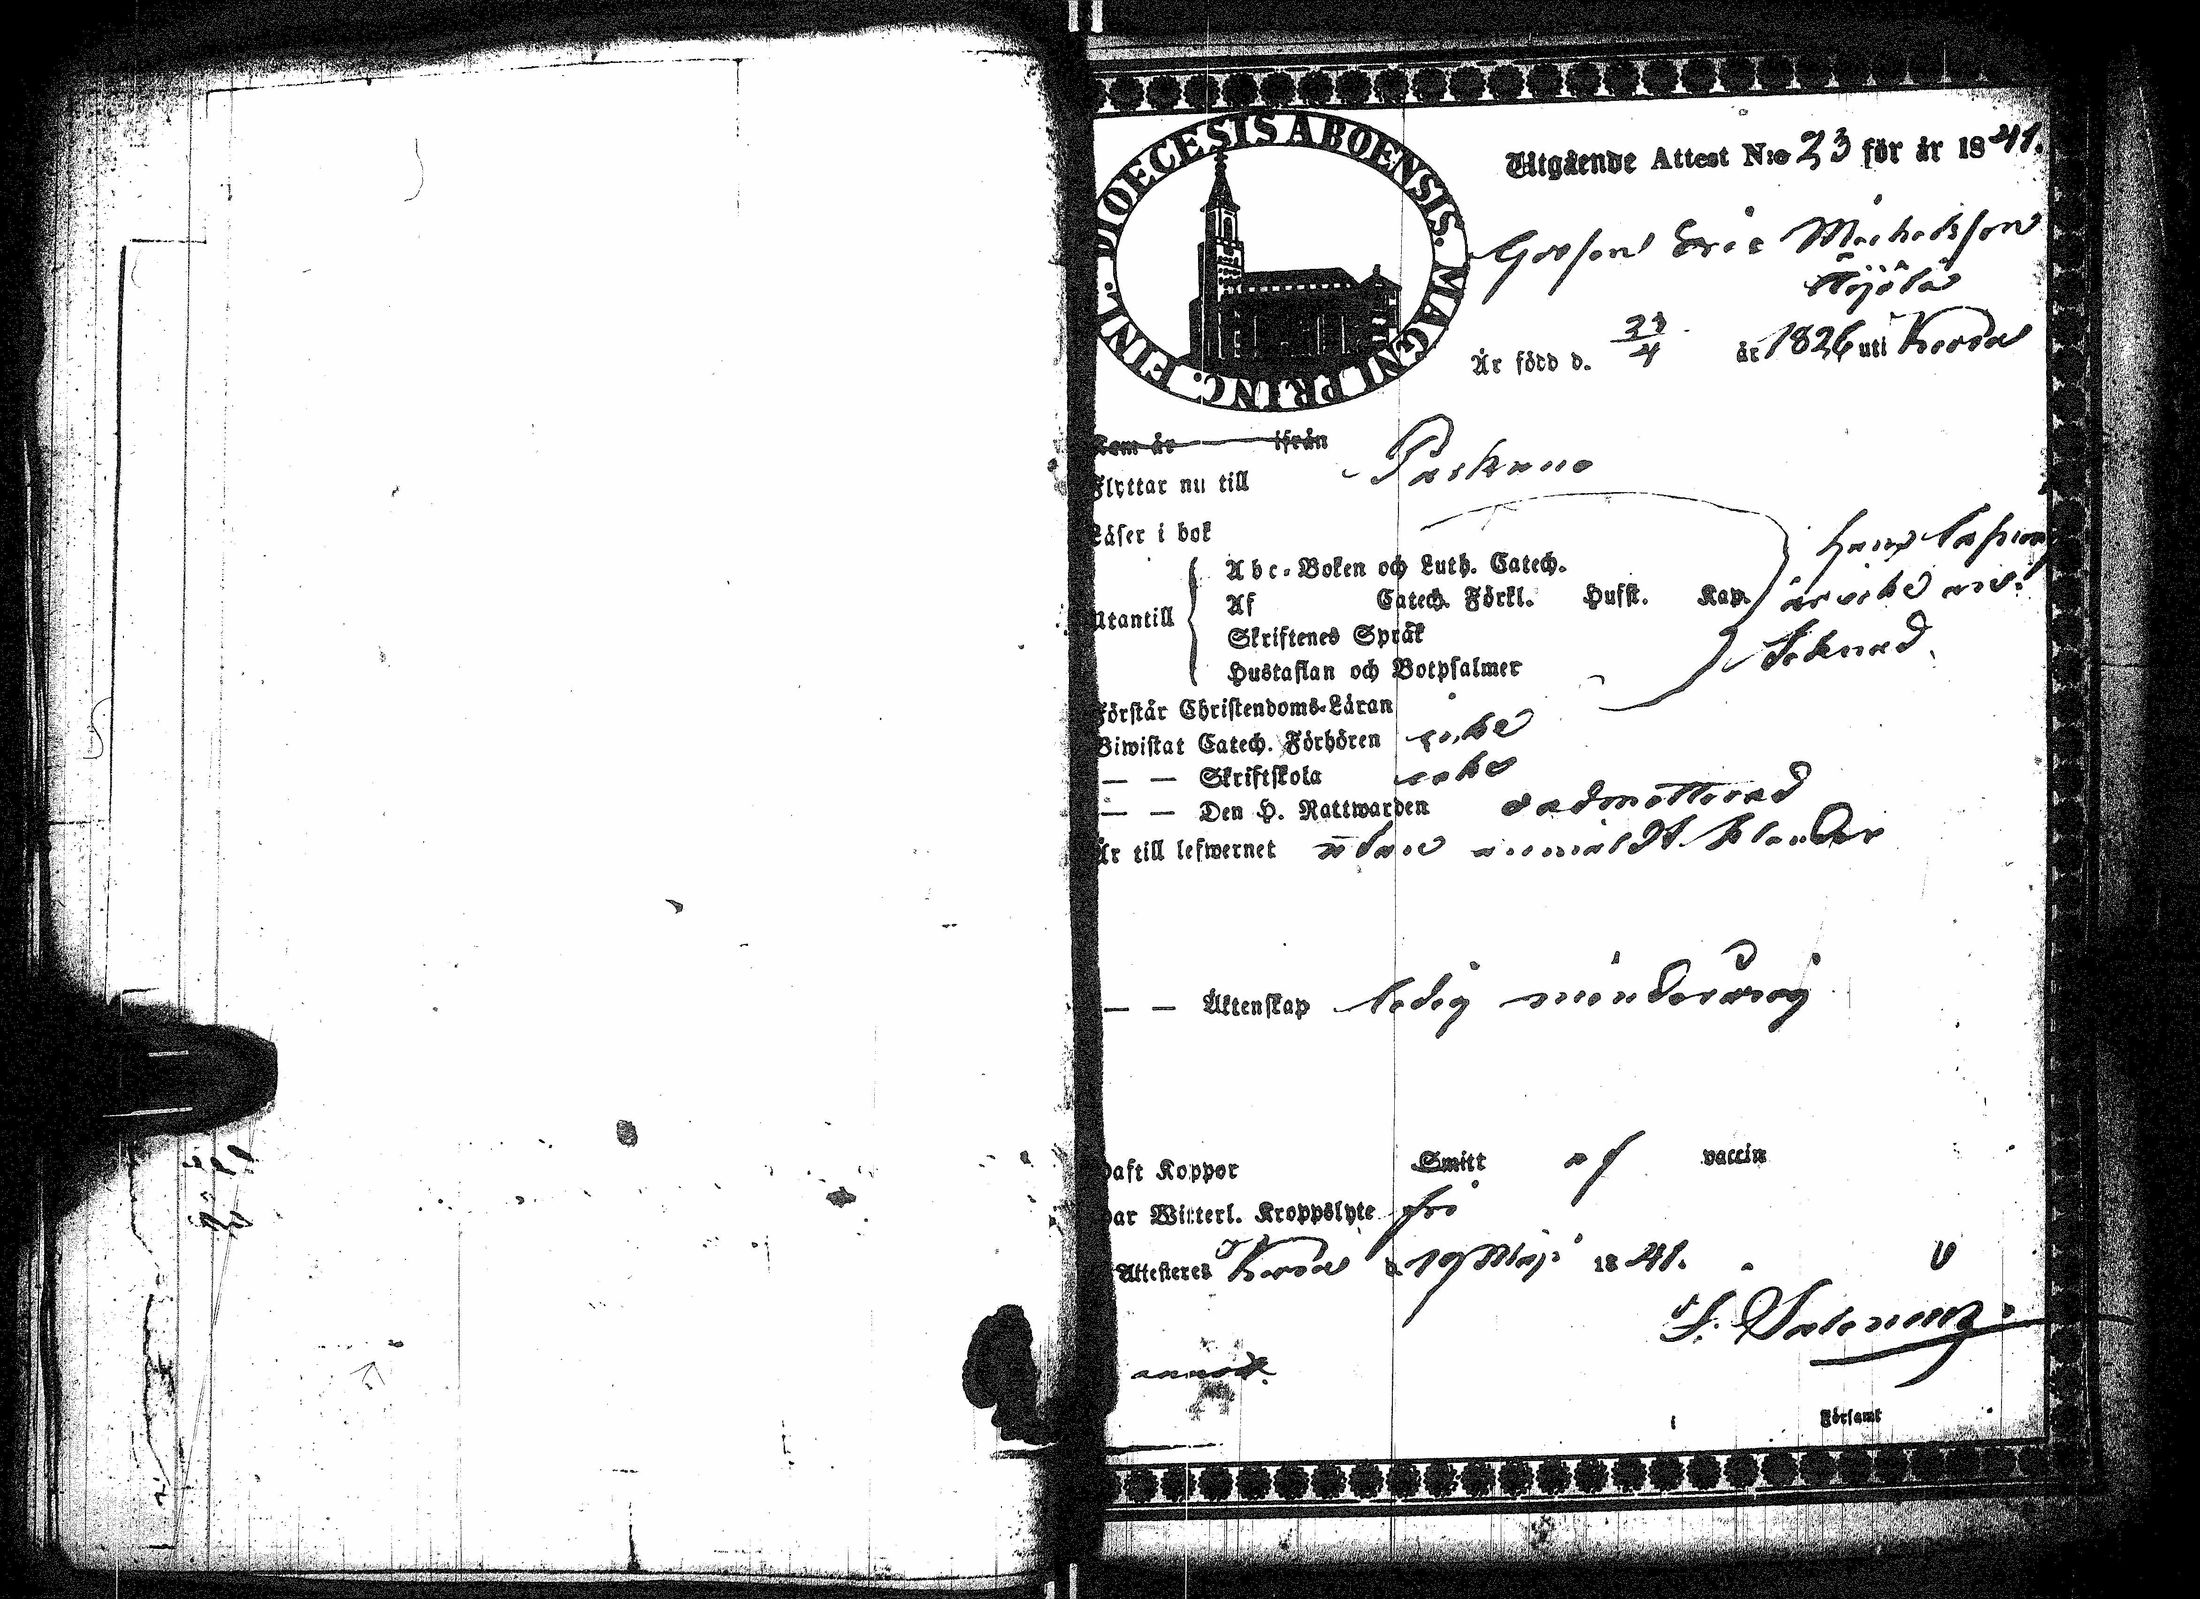 DIOECESIS ABOENSIS. MAGNI PRINC. FINL.
Utgående Attest N:o 23 för år 1841.
Gossen Eric Michelsson
Är född d. 23/4 år 1826 uti
Kom år ifrån
Flyttar nu till
Läser i bok
Abc-Boken och Luth. Catech.
Utantill Af Catech. Förkl. Husst. Kap. är icke
Skriftenes Språk
Hustaflan och Botpsalmer
Förstår Christendoms-Läran
Biwistat Catech. Förhören icke
— — Skriftskola icke
— — Den H. Nattwarden oadmitterad
Är till lefwernet utan anmäldt klander
— — Äktenskap ledig minderårig
Haft Koppor Smitt af vaccin
Har Witterl. Kroppslyte fri
Attesteres d. 19 Maji 1841.
Församl